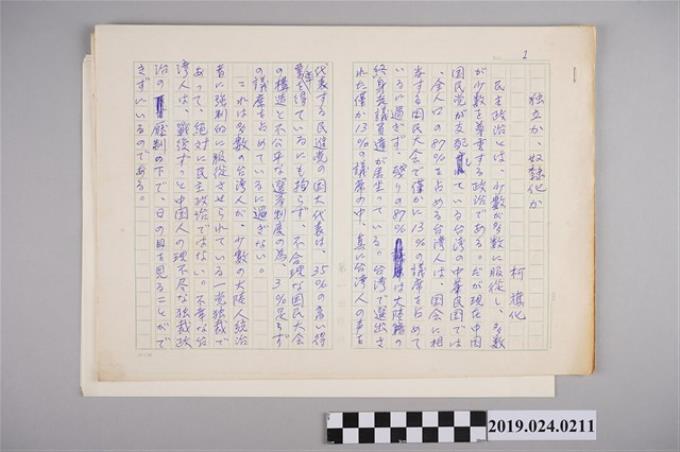 1
独立か、奴隷化か
柯旗化
民主政治とは、少数が多数に服従し、多数
が少数を尊重する政治である。だが現在中国
国民党が支配している台湾の中華民国では
、全人口の87%を占める台湾人は、国会に相
当する国民大会で僅かに13%の議席を占めて
いるに過ぎず、残りの87%は大陸籍の
終身議員達が居坐っている。台湾で選出さ
れた僅か13%の議席の中、真に台湾人の声を
代表する民進党の国大代表は、35%の高い得
票率を得ているにも拘らず、不合理な国民大会
の構造と不公平な選挙制度の為、3%足らず
の議席を占めているに過ぎない。
これは多数の台湾人が、少数の大陸人統治
者に強制的に服従させられている一党独裁で
あって、絶対に民主政治ではない。不幸な台
湾人は、戦後ずっと中国人の理不尽な独裁政
治の圧制の下で、日の目を見ることがで
きずにいるのである。
2019.024.0211